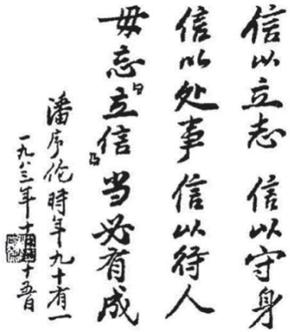 信以立志 信以守身
信以处事 信以待人
毋忘立信 当必有成
潘序伦時年九十有一
一九八三年十月十五日